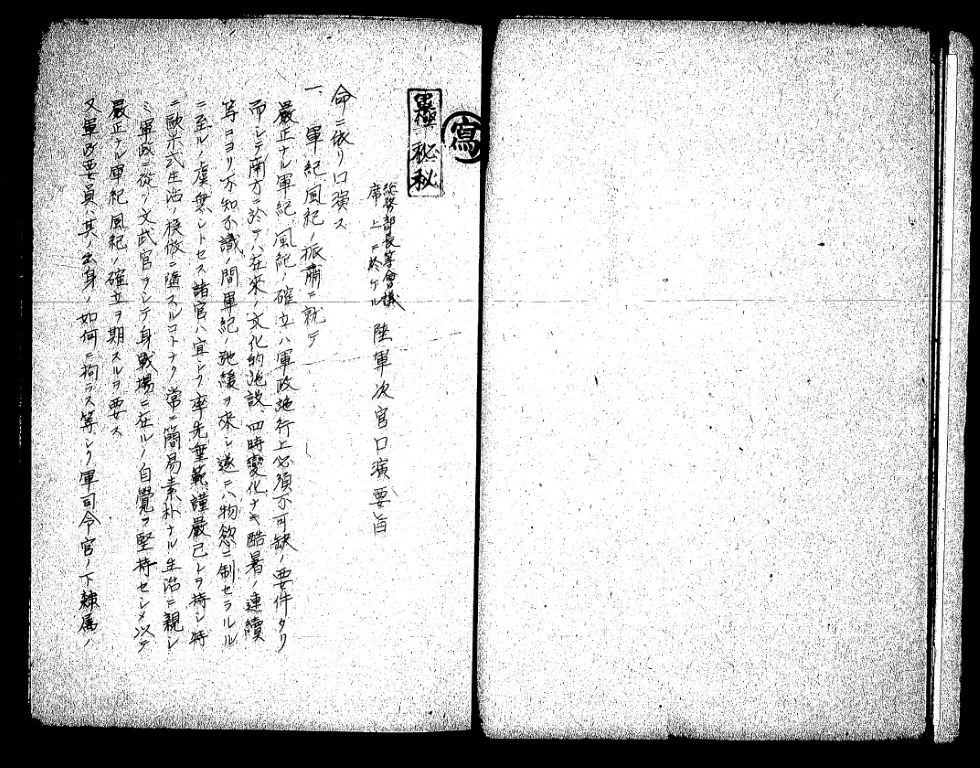 寫
軍極秘
總務部長等會議
席上ニ於ケル
陸軍次官口演要旨
命ニ依リ口演ス
一、軍紀風紀ノ振肅ニ就テ
嚴正ナル軍紀、風紀ノ確立ハ軍政施行上必須不可缺ノ要件タリ
而シテ南方ニ於テハ在來ノ文化的施設、四時變化ナキ酷暑ノ連續
等ヨリ不知不識ノ間軍紀ノ弛緩ヲ來シ遂ニハ物慾ニ制セラルル
ニ至ルノ虞無シトセス諸官ハ宜シク率先垂範、謹嚴己レヲ持シ特
ニ歐米式生活ノ模倣ニ墮スルコトナク常ニ簡易素朴ナル生活ニ親シ
ミ軍政ニ從フ文武官ヲシテ身戰場ニ在ルノ自覺ヲ堅持セシメ以テ
嚴正ナル軍紀風紀ノ確立ヲ期スルヲ要ス
又軍政要員ハ其ノ出身ノ如何ニ拘ラス等シク軍司令官ノ下隷屬ノ